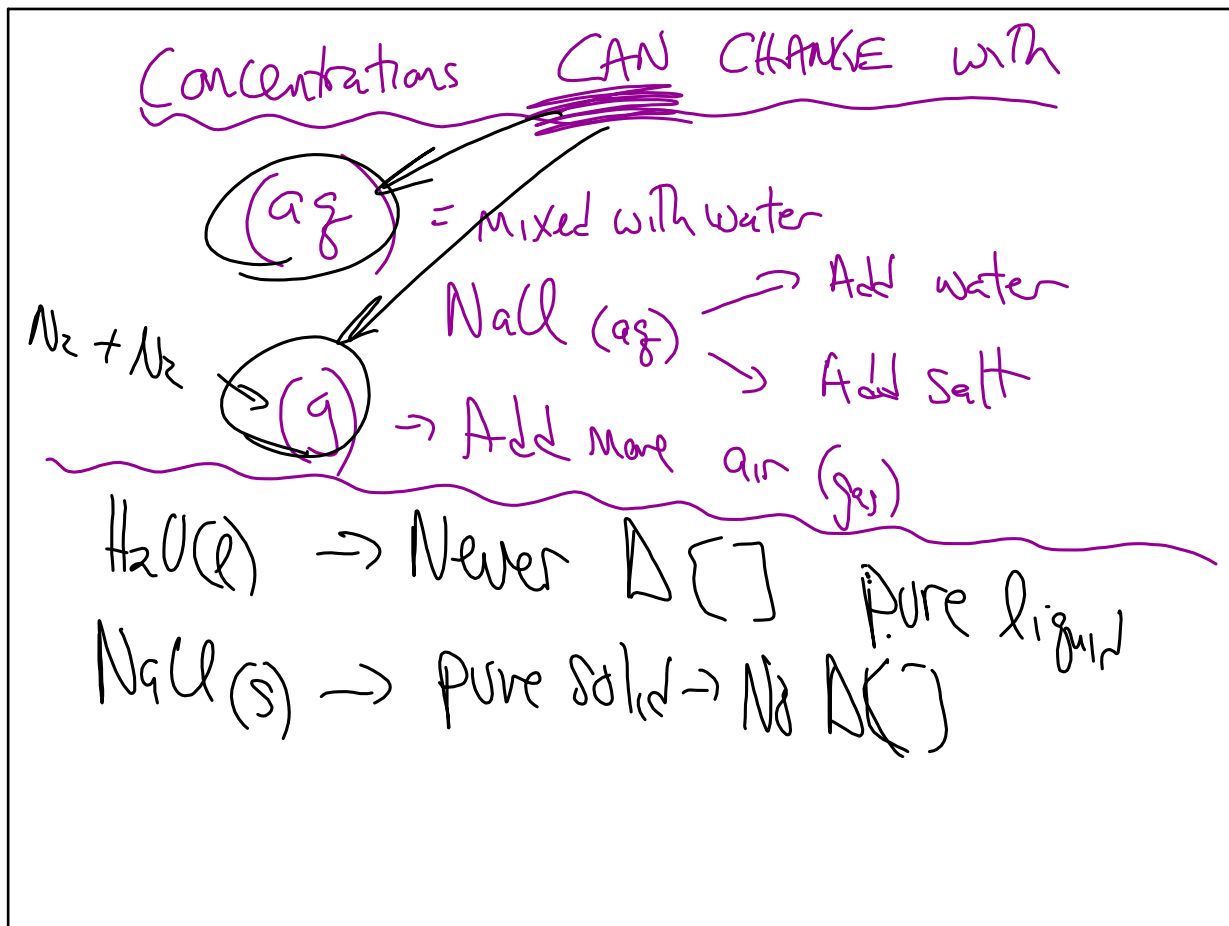 Concentrations CAN CHANGE with
(aq) = Mixed with water
NaCl (aq) → Add water
→ Add Salt
N₂ + N₂ → (g) → Add More air (gas)
H₂O(l) → Never Δ[ ] pure liquid
NaCl (s) → pure solid → No Δ[ ]